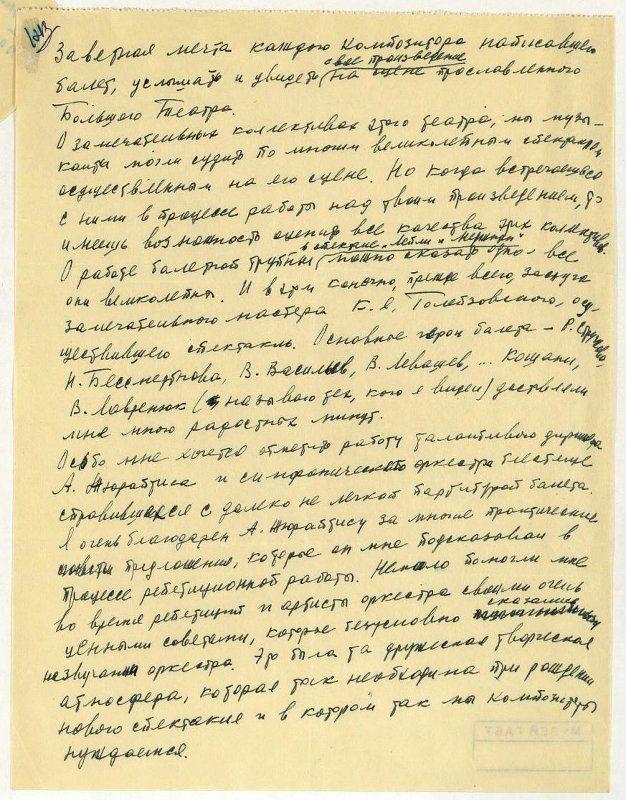 Заветная мечта каждого композитора написавшего
балет, услышать и увидеть свое произведение на сцене прославленного
Большого Театра.
О замечательных коллективах этого театра, мы музы-
канты могли судить по многим великолепным спектаклям
осуществленным на его сцене. Но когда встречаешься
с ними в процессе работы над твоим произведением, то
имеешь возможность оценить все качества этих коллективов.
О работе балетной труппы в спектакле "Лейли и Меджнун" можно сказать одно - все
они великолепны. И в этом конечно, прежде всего, заслуга
замечательного мастера К. Я. Голейзовского, осу-
ществившего спектакль. Основные герои балета - Р. Стручкова,
Н. Бессмертнова, В. Васильев, В. Левашев, ... Кошани,
В. Лавренюк (я называю тех, кого я видел) доставляли
мне много радостных минут.
Особо мне хочется отметить работу талантливого дирижера
А. Жюрайтиса и симфонического оркестра блестяще
справившихся с далеко не легкой партитурой балета.
Я очень благодарен А. Жюрайтису за многие практические
предложения, которые он мне подсказывал в
процессе репетиционной работы. Немало помогли мне
во время репетиций и артисты оркестра своими очень
ценными советами, которые безусловно сказались
на звучании оркестра. Это была та дружеская творческая
атмосфера, которая так необходима при рождении
нового спектакля и в котором так мы композиторы
нуждаемся.
МУЗЕЙ ГАБТ